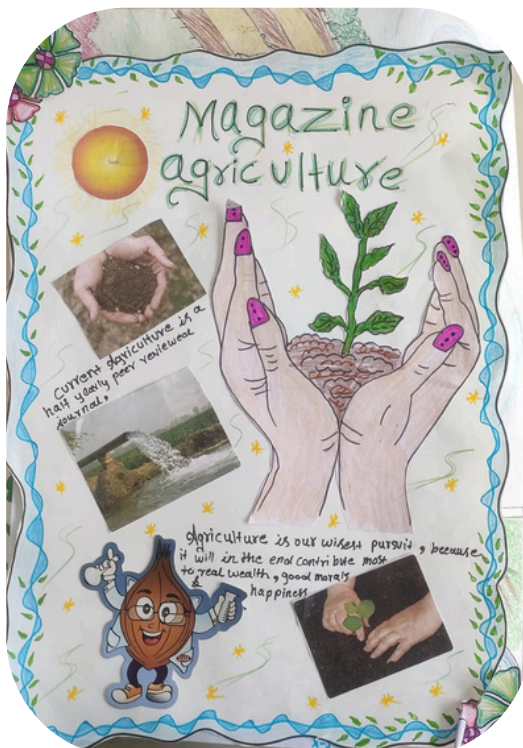 Magazine
agriculture
Current agriculture is a
half yearly peer reviewed
journal,
Agriculture is our wisest pursuit, because
it will in the end contribute most
to real wealth, good morals
& happiness